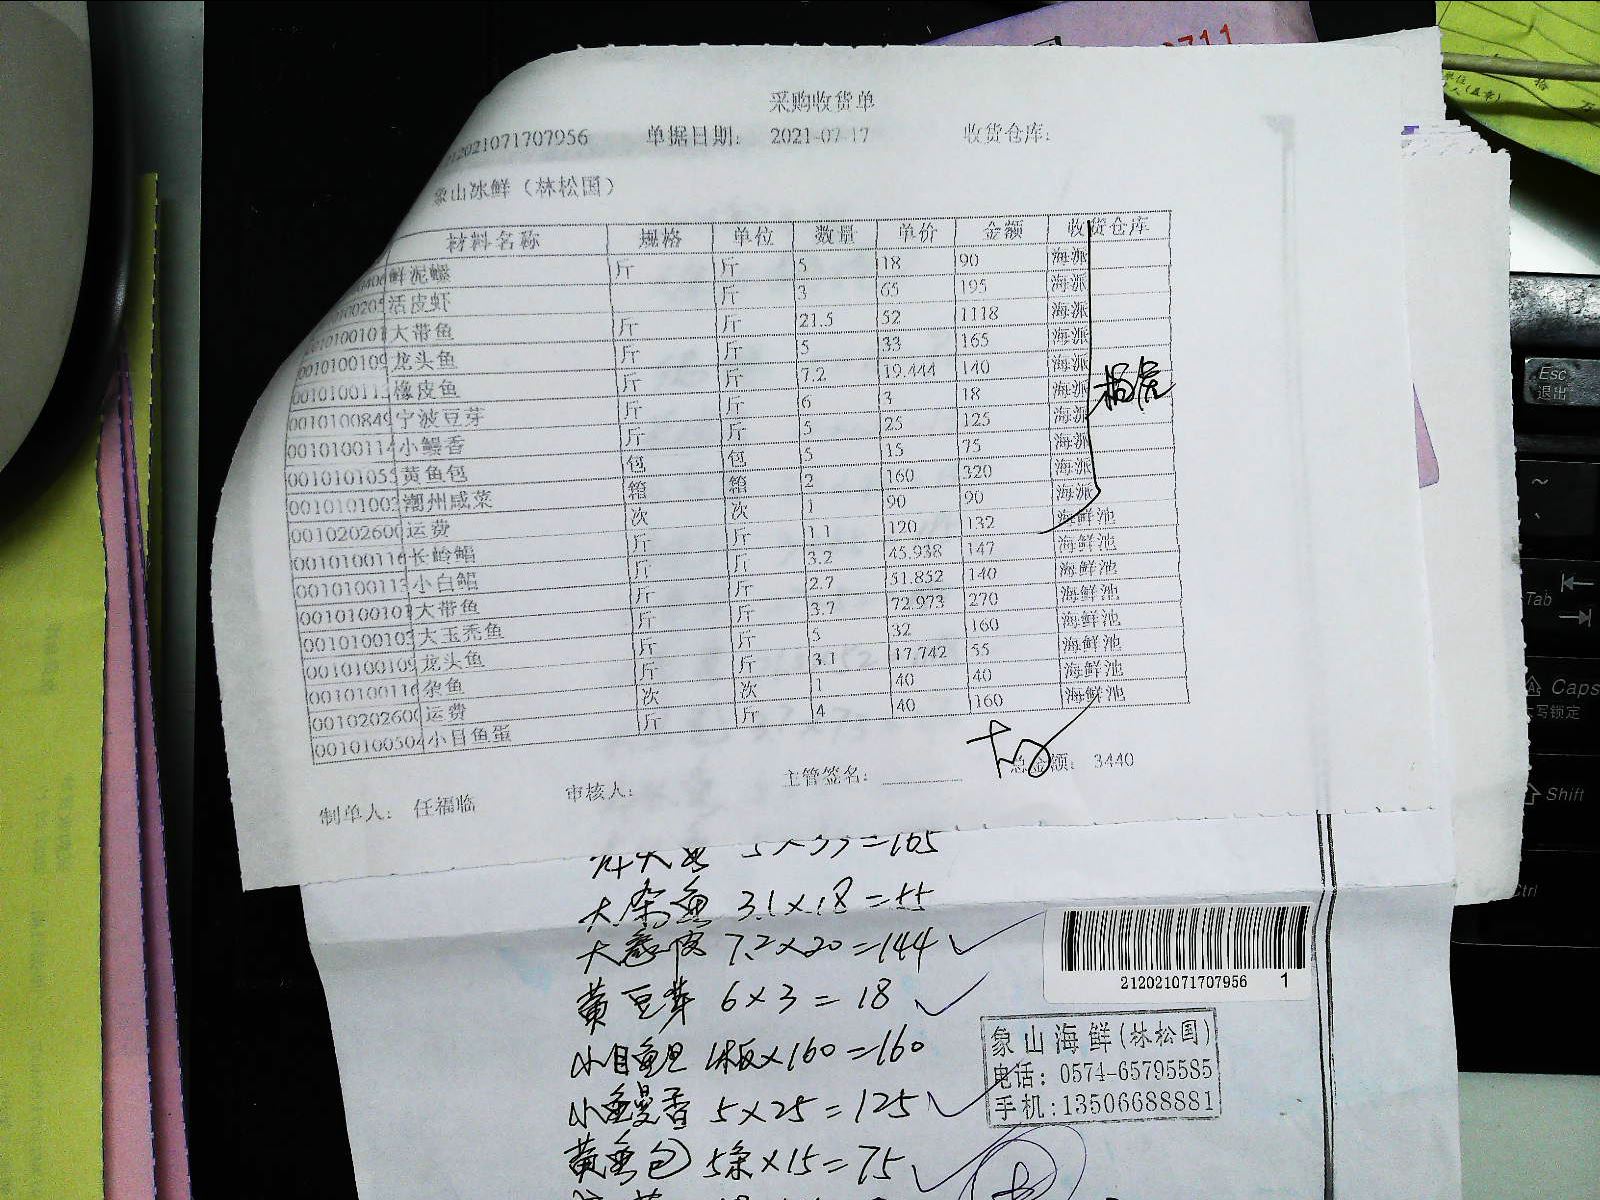 0711
采购收货单
212021071707956 单据日期: 2021-07-17 收货仓库:
象山冰鲜（林松国）
材料名称 规格 单位 数量 单价 金额 收货仓库
鲜泥螺 斤 斤 5 18 90 海派
活皮虾 斤 3 65 195 海派
0100101 大带鱼 斤 斤 21.5 52 1118 海派
0010100109 龙头鱼 斤 斤 5 33 165 海派
0010100113 橡皮鱼 斤 斤 7.2 19.444 140 海派
0010100849 宁波豆芽 斤 斤 6 3 18 海派
0010100114 小鳗香 斤 斤 5 25 125 海派
0010101055 黄鱼包 包 包 5 15 75 海派
0010101003 潮州咸菜 箱 箱 2 160 320 海派
0010202600 运费 次 次 1 90 90 海派
0010100116 长岭鲳 斤 斤 1.1 120 132 海鲜池
0010100113 小白鲳 斤 斤 3.2 45.938 147 海鲜池
0010100101 大带鱼 斤 斤 2.7 51.852 140 海鲜池
0010100103 大玉秃鱼 斤 斤 3.7 72.973 270 海鲜池
0010100109 龙头鱼 斤 斤 5 32 160 海鲜池
0010100116 杂鱼 斤 斤 3.1 17.742 55 海鲜池
0010202600 运费 次 次 1 40 40 海鲜池
0010100504 小目鱼蛋 斤 斤 4 40 160 海鲜池
制单人: 任福临 审核人: 主管签名: 总金额: 3440
5×33=165
大杂鱼 3.1×18=55
7.2×20=144
黄豆芽 6×3=18
小目鱼旦 1板×160=160
小鳗香 5×25=125
黄鱼包 5条×15=75
212021071707956 1
象山海鲜(林松国)
电话: 0574-65795585
手机:13506688881
Esc
退出
Tab
Caps
Shift
Ctrl